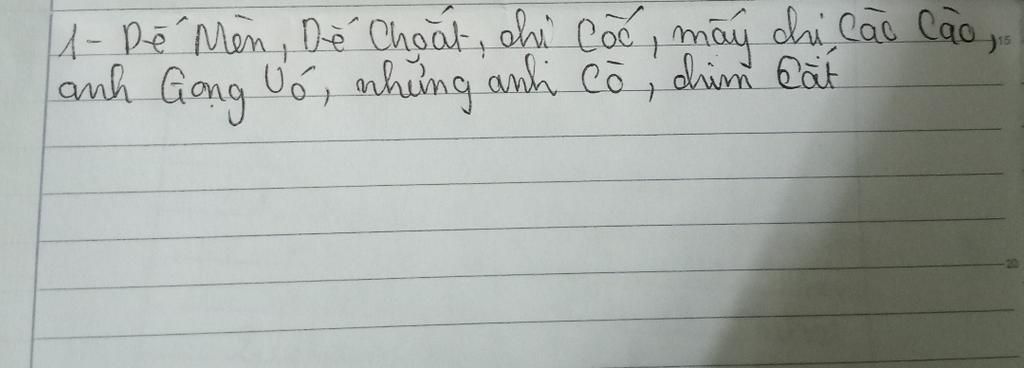 1- Dế Mèn, Dế Choắt, chị Cốc, mấy chị Cào Cào,
anh Gọng Vó, những anh Cò, chim Cắt
15
20